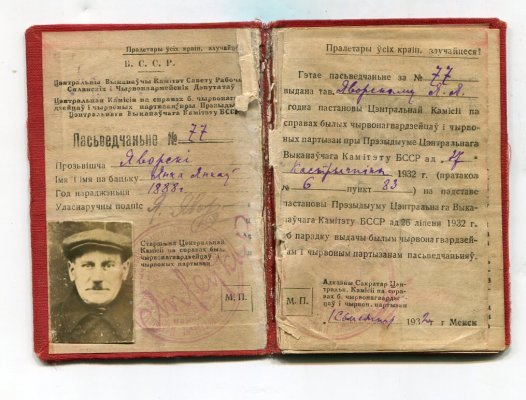 Пралетары ўсіх краін, злучайцеся!
Б. С. С. Р.
Цэнтральны Выканаўчы Камітэт Совету Рабочых
Сялянскіх і Чырвонаармейскіх Дэпутатаў
Цэнтральная Камісія па справах б. чырвонагвардзейцаў
і чырвоных партызан пры Прэзыдыуме
Цэнтральнага Выканаўчага Камітэту БССР
Пасьведчаньне № 77
Прозьвішча Яворскі
Імя і імя на бацьку
Год нараджэньня 1888 г.
Уласнаручны подпіс
Старшыня Цэнтральнай
Камісіі па справах был.
чырвонагвардзейцаў і
чырвоных партызан
М. П.
Пралетары ўсіх краін, злучайцеся!
Гэтае пасьведчаньне за № 77
выдана тав. Яворскому Я. Я.
згодна пастановы Цэнтральнай Камісіі па
справах былых чырвонагвардзейцаў і чырво-
ных партызан пры Прэзыдыуме Цэнтральнага
Выканаўчага Камітэту БССР ад 27
Кастрычніка 1932 г. (пратакол
№ 6 пункт 83) на падставе
пастановы Прэзыдыуму Цэнтральнага Выка-
наўчага Камітэту БССР ад 26 ліпеня 1932 г.
б парадку выдачы былым чырвонагвардзей-
цам і чырвоным партызанам пасьведчаньняў.
Адказны Сакратар Цэн-
тральн. Камісіі па спра-
вах б. чырвонагвардзей-
цаў і чырвон. партызан
М. П.
1932 г. Менск